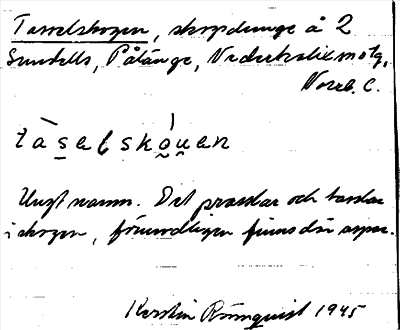 Tasselskogen, skogsdunge å 2
Sundells, Pålänge, Nederkalix sn o tg,
Norrb. l.
tàsəl skó̱u̯ən
Ungt namn. Det prasslar och tasslar
i skogen, förmodligen finns där aspar.
Kerstin Rönnquist 1945